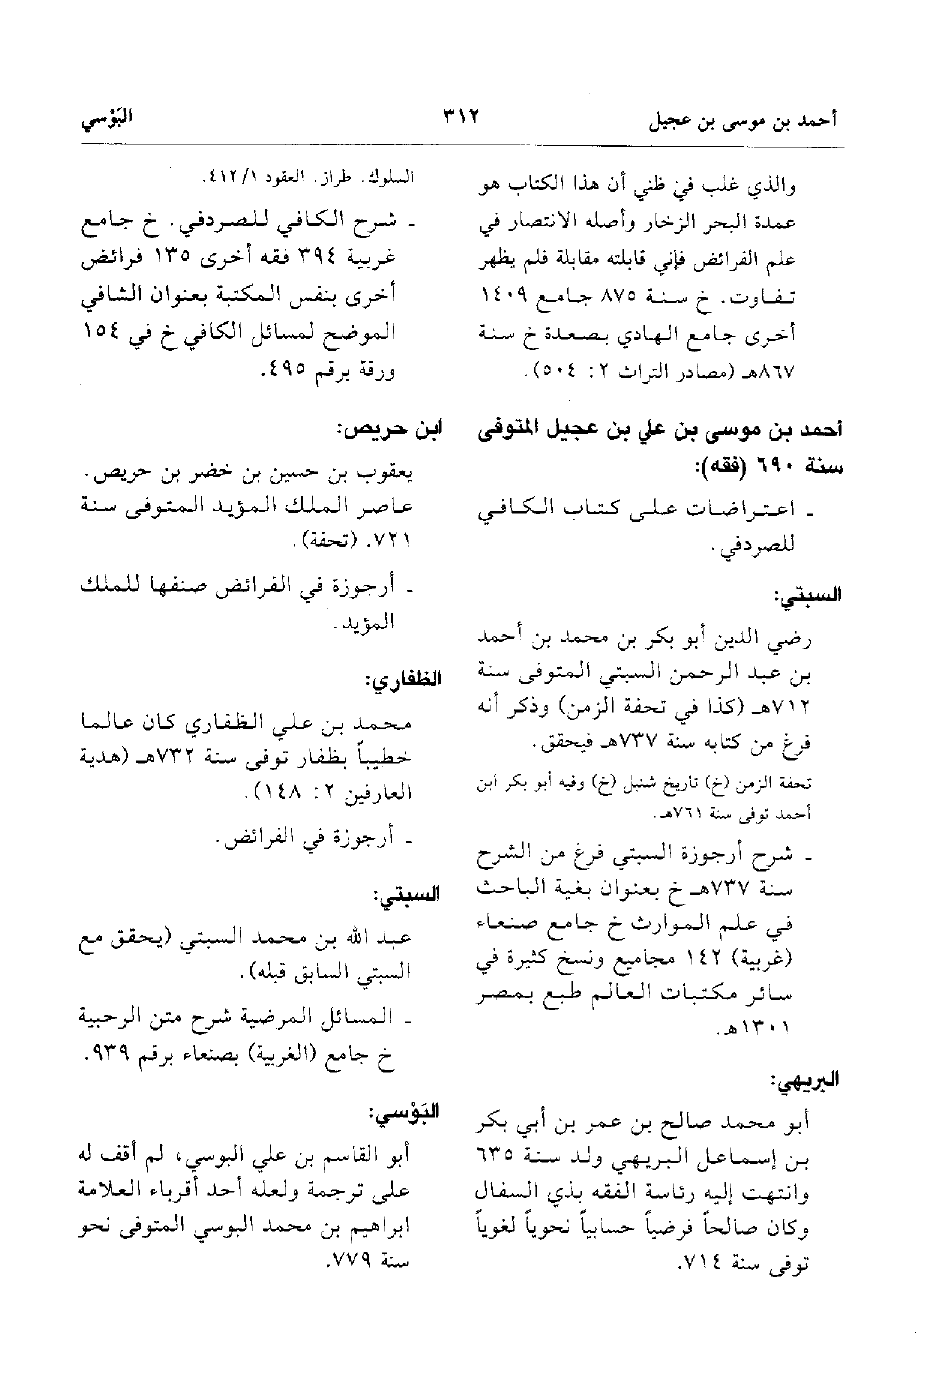 أحمد بن موسى بن عجيل
٣١٢
البَوْسي
والذي غلب في ظني أن هذا الكتاب هو
عمدة البحر الزخار وأصله الانتصار في
علم الفرائض فإني قابلته مقابلة فلم يظهر
تفاوت. خ سنة ٨٧٥ جامع ١٤٠٩
أخرى جامع الهادي بصعدة خ سنة
٨٦٧هـ (مصادر التراث ٢: ٥٠٤).
أحمد بن موسى بن علي بن عجيل المتوفى
سنة ٦٩٠ (فقه):
ـ اعتراضات على كتاب الكافي
للصردفي.
السبتي:
رضي الدين أبو بكر بن محمد بن أحمد
بن عبد الرحمن السبتي المتوفى سنة
٧١٢هـ (كذا في تحفة الزمن) وذكر أنه
فرغ من كتابه سنة ٧٣٧هـ فيحقق.
تحفة الزمن (خ) تاريخ شنبل (خ) وفيه أبو بكر ابن
أحمد توفى سنة ٧٦١هـ.
ـ شرح أرجوزة السبتي فرغ من الشرح
سنة ٧٣٧هـ خ بعنوان بغية الباحث
في علم الموارث خ جامع صنعاء
(غربية) ١٤٢ مجاميع ونسخ كثيرة في
سائر مكتبات العالم طبع بمصر
١٣٠١هـ.
البريهي:
أبو محمد صالح بن عمر بن أبي بكر
بن إسماعل البريهي ولد سنة ٦٣٥
وانتهت إليه رئاسة الفقه بذي السفال
وكان صالحاً فرضياً حسابياً نحوياً لغوياً
توفى سنة ٧١٤.
السلوك. طراز. العقود ٤١٢/١.
ـ شرح الكافي للصردفي. خ جامع
غربية ٣٩٤ فقه أخرى ١٣٥ فرائض
أخرى بنفس المكتبة بعنوان الشافي
الموضح لمسائل الكافي خ في ١٥٤
ورقة برقم ٤٩٥.
ابن حريص:
يعقوب بن حسين بن خضر بن حريص.
عاصر الملك المؤيد المتوفى سنة
٧٢١. (تحفة).
ـ أرجوزة في الفرائض صنفها للملك
المؤيد.
الظفاري:
محمد بن علي الظفاري كان عالما
خطيباً بظفار توفى سنة ٧٣٢هـ (هدية
العارفين ٢: ١٤٨).
ـ أرجوزة في الفرائض.
السبتي:
عبد الله بن محمد السبتي (يحقق مع
السبتي السابق قبله).
ـ المسائل المرضية شرح متن الرحبية
خ جامع (الغربية) بصنعاء برقم ٩٣٩.
البَوْسي:
أبو القاسم بن علي البوسي، لم أقف له
على ترجمة ولعله أحد أقرباء العلامة
ابراهيم بن محمد البوسي المتوفى نحو
سنة ٧٧٩.